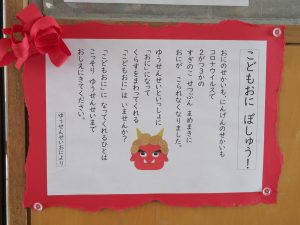 こどもおに ぼしゅう！
おにのせかいも、にんげんのせかいも
コロナウイルスで、
２がつ３かの
すぎのこ せつぶん まめまきに
おにが こられなくなりました。
ゆうせんせいといっしょに
「おに」になって
くらすをまわってくれる
「こどもおに」は いませんか？
「こどもおに」に なってくれるひとは
こっそり ゆうせんせいまで
おしえにきてください。
ゆうせんせいおにより